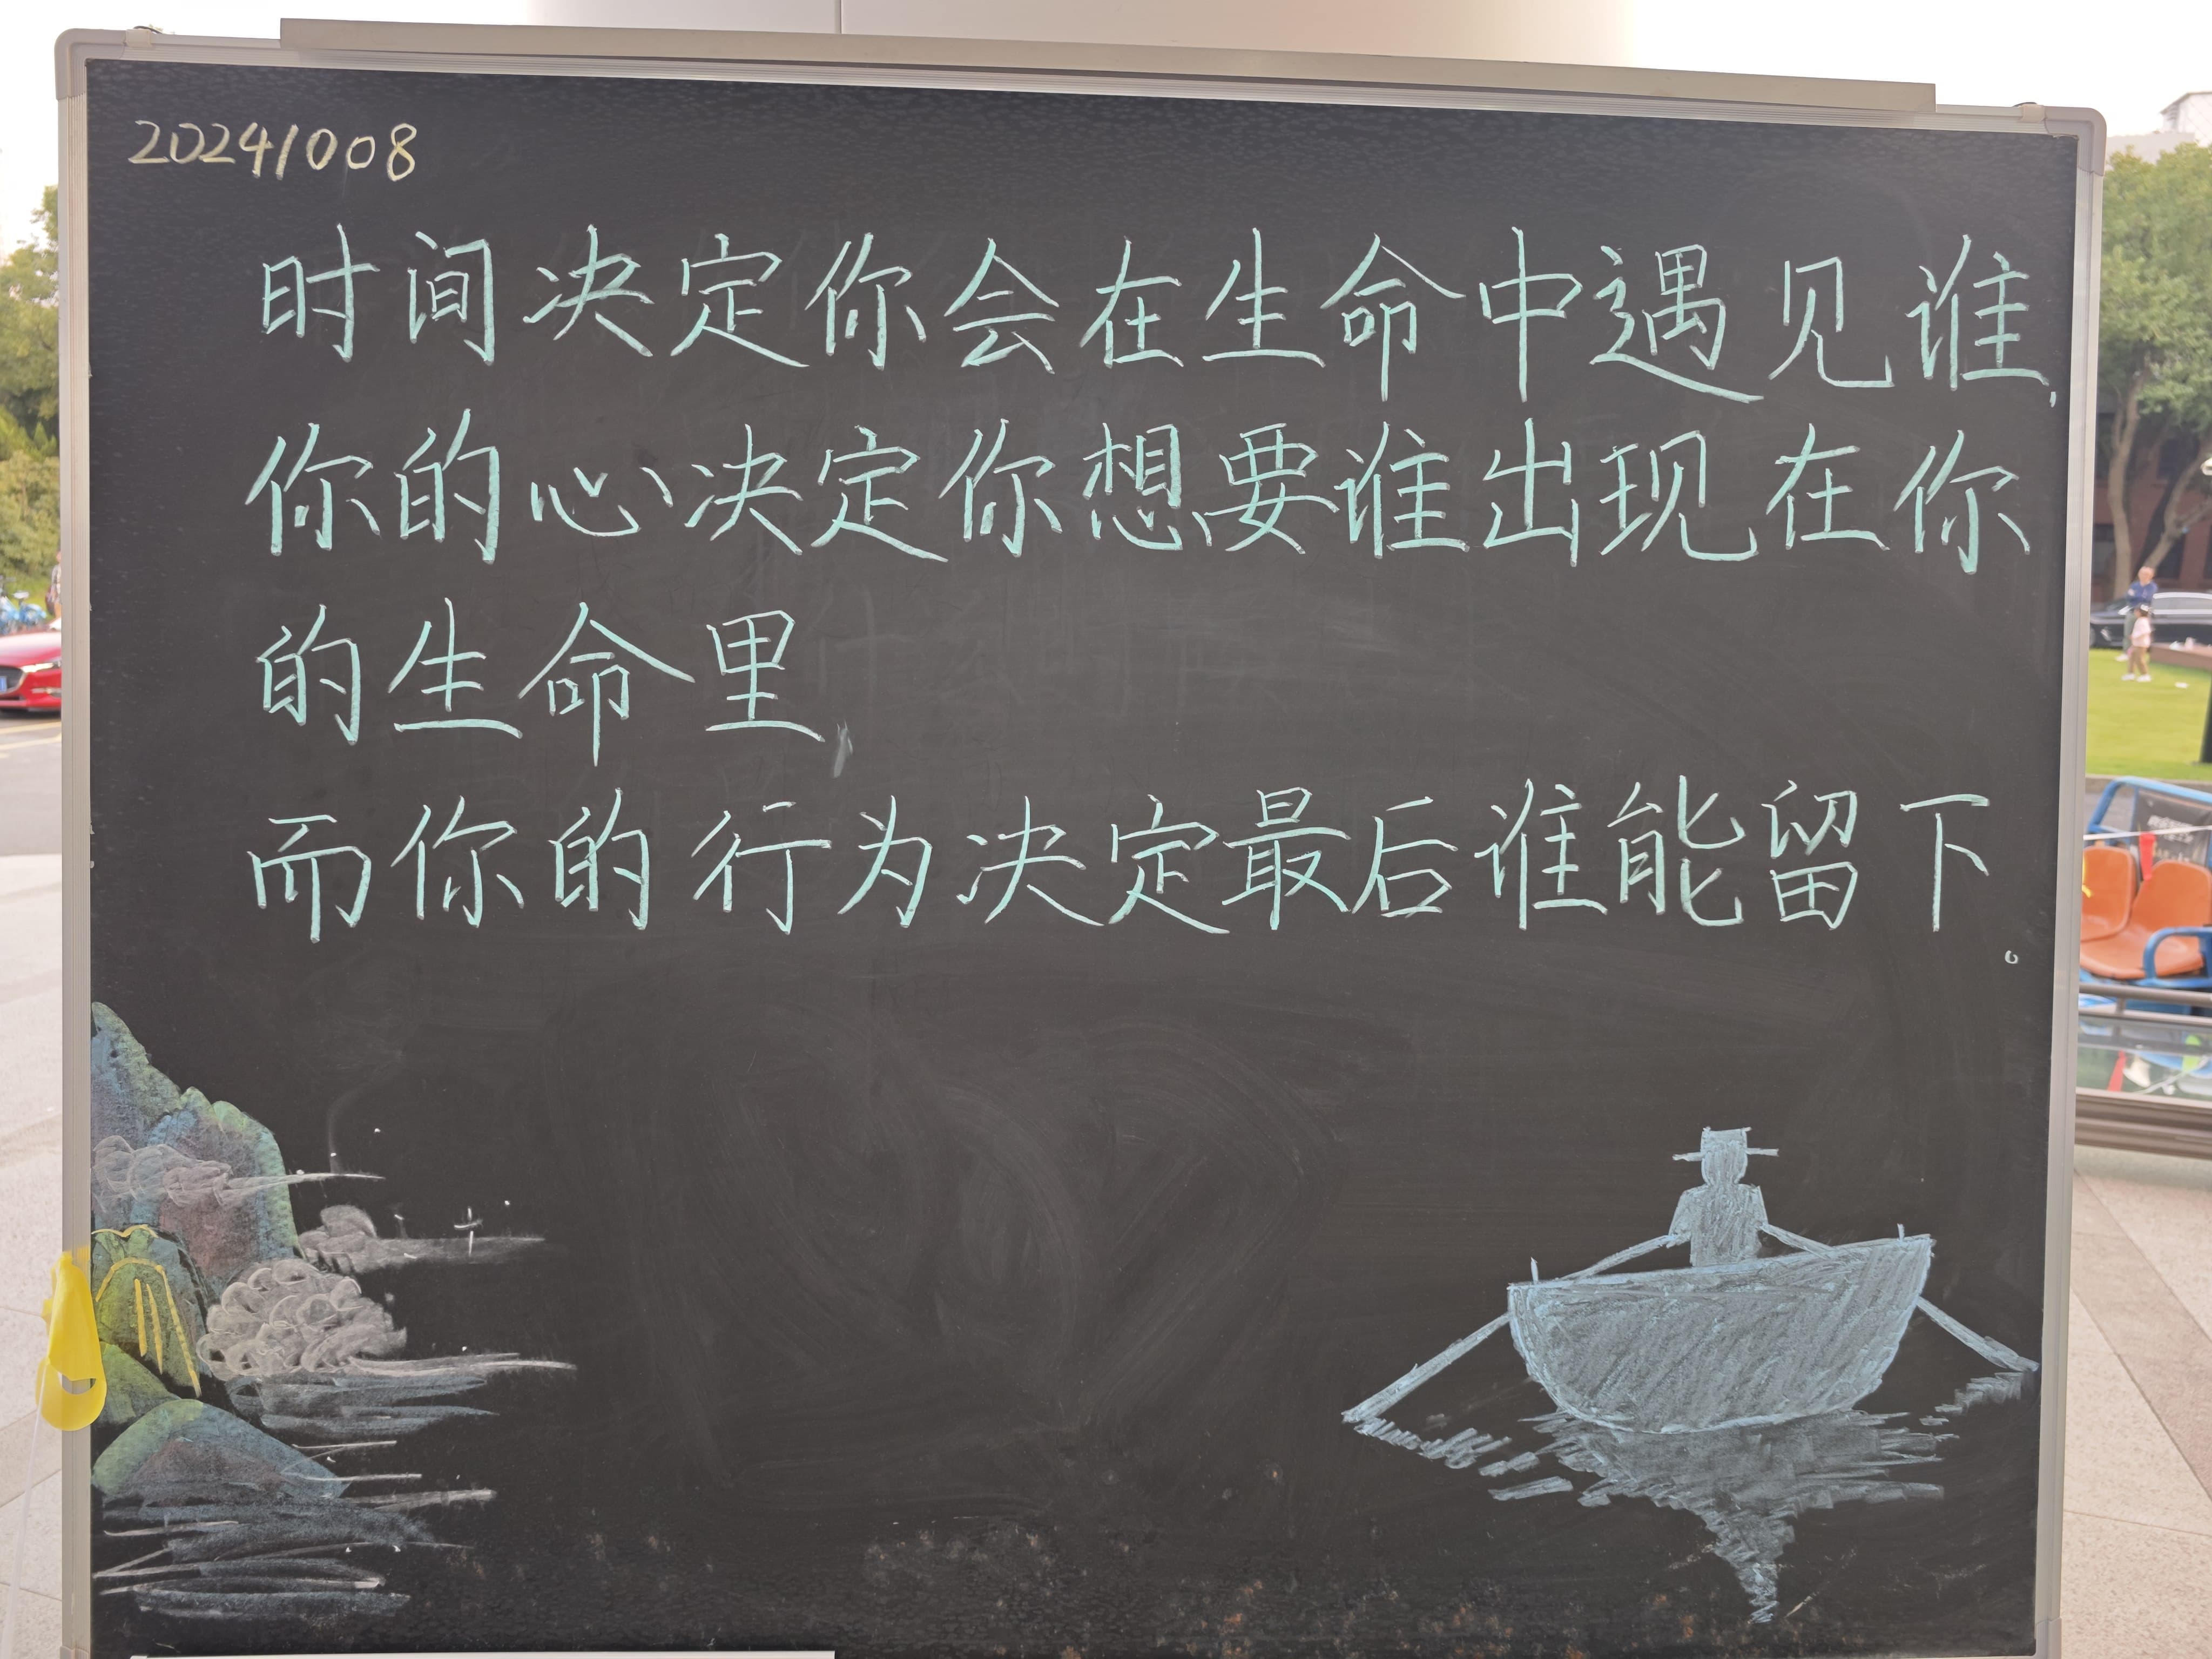 20241008
时间决定你会在生命中遇见谁,
你的心决定你想要谁出现在你
的生命里,
而你的行为决定最后谁能留下。